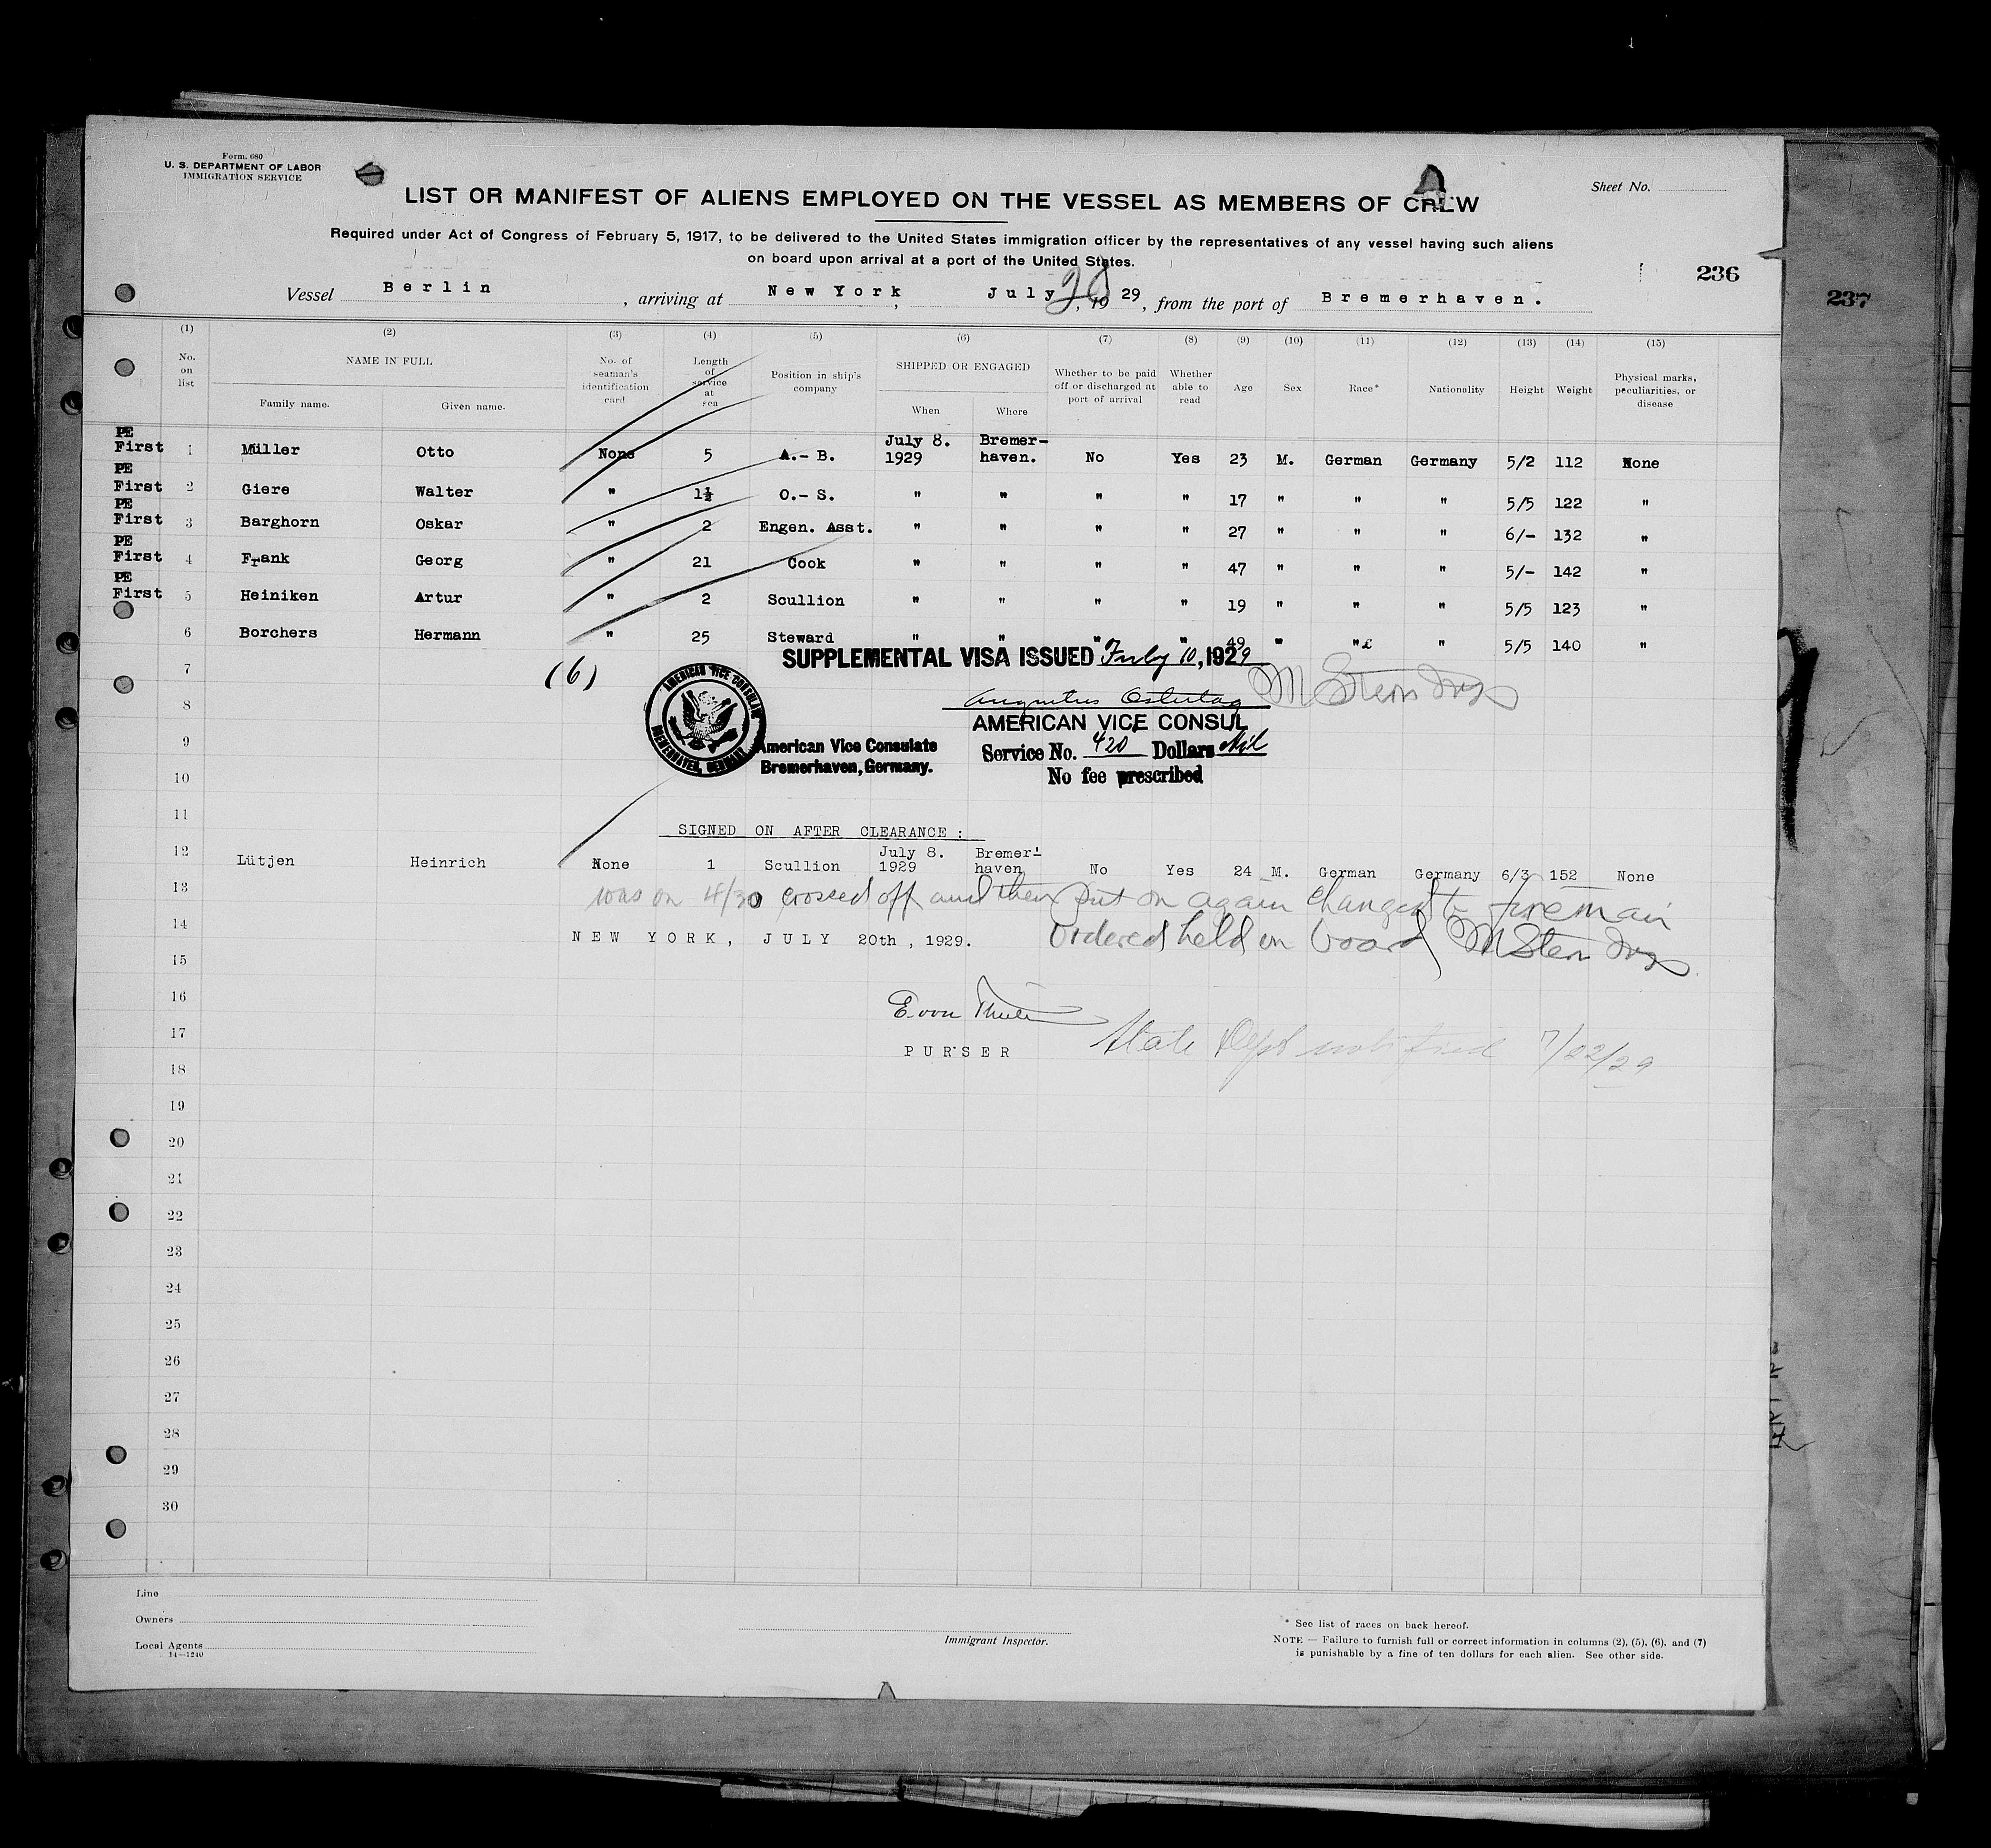 Form. 680
U. S. DEPARTMENT OF LABOR
IMMIGRATION SERVICE
Sheet No.
LIST OR MANIFEST OF ALIENS EMPLOYED ON THE VESSEL AS MEMBERS OF CREW
Required under Act of Congress of February 5, 1917, to be delivered to the United States immigration officer by the representatives of any vessel having such aliens
on board upon arrival at a port of the United States.
236
237
Vessel Berlin, arriving at New York, July 20, 1929, from the port of Bremerhaven.
(1) (2) (3) (4) (5) (6) (7) (8) (9) (10) (11) (12) (13) (14) (15)
No. on list NAME IN FULL Family name. Given name. No. of seaman's identification card Length of service at sea Position in ship's company SHIPPED OR ENGAGED When Where Whether to be paid off or discharged at port of arrival Whether able to read Age Sex Race* Nationality Height Weight Physical marks, peculiarities, or disease
PE First 1 Müller Otto None 5 A.- B. July 8. 1929 Bremer-haven. No Yes 23 M. German Germany 5/2 112 None
PE First 2 Giere Walter " 1½ O.- S. " " " " 17 " " " 5/5 122 "
PE First 3 Barghorn Oskar " 2 Engen. Asst. " " " " 27 " " " 6/- 132 "
PE First 4 Frank Georg " 21 Cook " " " " 47 " " " 5/- 142 "
PE First 5 Heiniken Artur " 2 Scullion " " " " 19 " " " 5/5 123 "
6 Borchers Hermann " 25 Steward " " " " 49 " " " 5/5 140 "
7 (6) SUPPLEMENTAL VISA ISSUED July 10, 1929
AMERICAN VICE CONSULATE
BREMERHAVEN, GERMANY.
8 Augustus Ostertag M Stern Insp
AMERICAN VICE CONSUL
9 American Vice Consulate Service No. 420 Dollars Nil
Bremerhaven, Germany. No fee prescribed
10
11
SIGNED ON AFTER CLEARANCE :
12 Lütjen Heinrich None 1 Scullion July 8. 1929 Bremer-haven No Yes 24 M. German Germany 6/3 152 None
13 was on 4/30 crossed off and then put on again changed to fireman
14 NEW YORK, JULY 20th, 1929. Ordered held on board M Stern Insp
15
16 E. von
17 State Dept notified 7/22/29
PURSER
18
19
20
21
22
23
24
25
26
27
28
29
30
Line
Owners
Local Agents
14—1240
Immigrant Inspector.
* See list of races on back hereof.
NOTE — Failure to furnish full or correct information in columns (2), (5), (6), and (7)
is punishable by a fine of ten dollars for each alien. See other side.